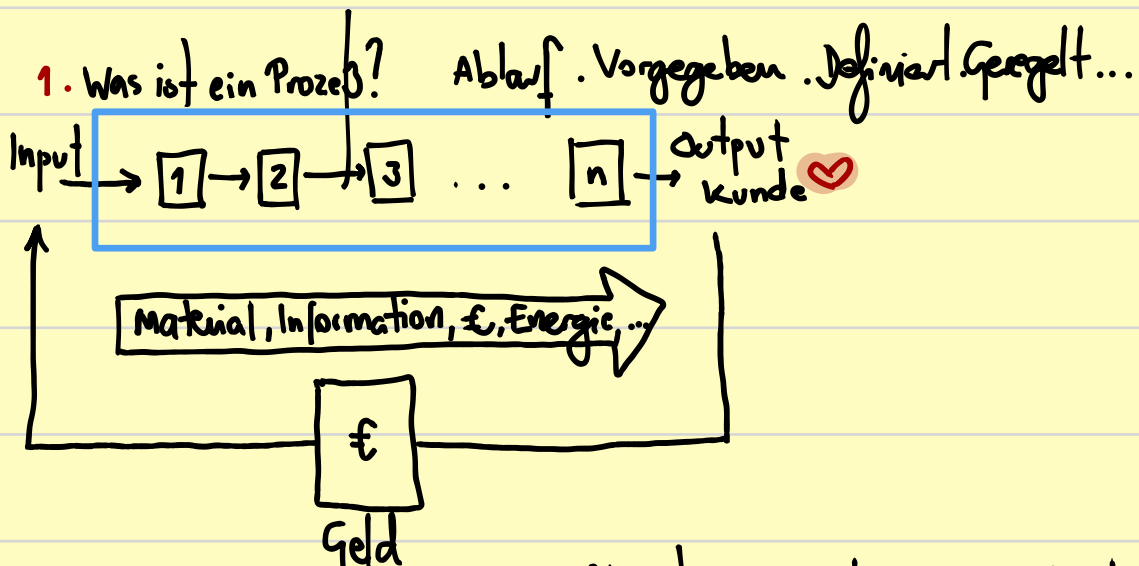 1. Was ist ein Prozeß? Ablauf . Vorgegeben . Definiert . Geregelt...
Input
1 2 3 ... n
Output
Kunde
Material, Information, €, Energie...
€
Geld